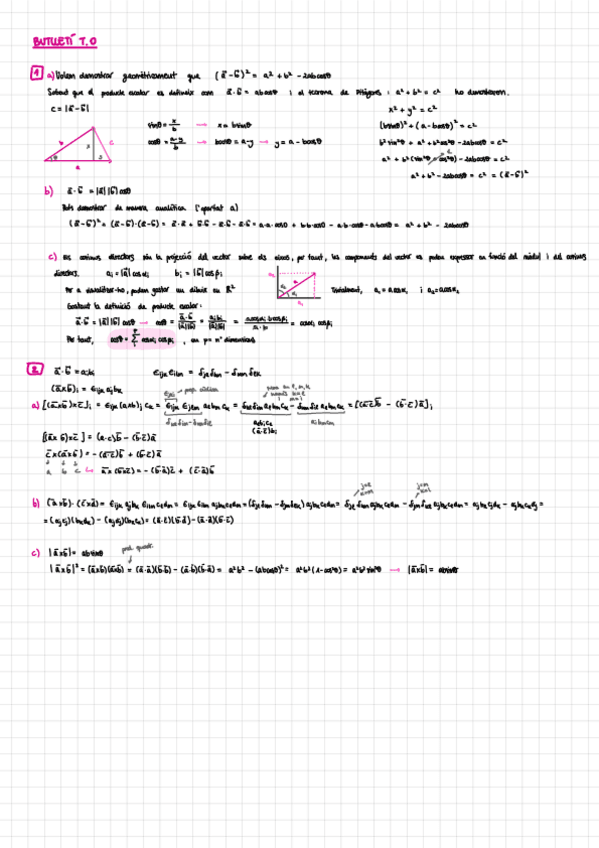 BUTLLETÍ T.0
1 a) Volem demostrar geomètricament que (a⃗ - b⃗)² = a² + b² - 2abcosθ
Sabent que el producte escalar es defineix com a⃗·b⃗ = abcosθ i el teorema de Pitàgores: a² + b² = c² ho demostrarem.
c = |a⃗ - b⃗|
x² + y² = c²
sinθ = x/b → x = bsinθ
(bsinθ)² + (a - bcosθ)² = c²
cosθ = (a-y)/b → bcosθ = a - y → y = a - bcosθ
b²sin²θ + a² + b²cos²θ - 2abcosθ = c²
a² + b²(sin²θ + cos²θ) - 2abcosθ = c²
a² + b² - 2abcosθ = c² = (a⃗ - b⃗)²
b) a⃗·b⃗ = |a⃗||b⃗|cosθ
demostrar de manera analítica l'apartat a)
(a⃗ - b⃗)² = (a⃗ - b⃗)·(a⃗ - b⃗) = a⃗·a⃗ + b⃗·b⃗ - a⃗·b⃗ - a⃗·b⃗ = a·a·cos0 + b·b·cos0 - a·b·cosθ - a·bcosθ = a² + b² - 2abcosθ
c) Els cosinus directors són la projecció del vector sobre els eixos, per tant, les components del vector es poden expressar en funció del mòdul i del cosinus
directors. aᵢ = |a⃗|cosαᵢ bᵢ = |b⃗|cosβᵢ
Per a visualitzar-ho, podem gastar un dibuix en ℝ²
Trivialment, a₁ = a cosα₁ i a₂ = a cosα₂
Gastant la definició de producte escalar:
a⃗·b⃗ = |a⃗||b⃗|cosθ → cosθ = a⃗·b⃗/|a⃗||b⃗| = aᵢbᵢ/|a⃗||b⃗| = a cosαᵢ b cosβᵢ/a·b = cosαᵢ cosβᵢ
Per tant, cosθ = Σ cosαᵢ cosβᵢ, on p = nº dimensions
2 a⃗·b⃗ = aᵢbᵢ εᵢⱼₖεᵢₗₘ = δⱼₗδₖₘ - δⱼₘδₗₖ
(a⃗×b⃗)ᵢ = εᵢⱼₖ aⱼbₖ
a) [(a⃗×b⃗)×c⃗]ᵢ = εᵢⱼₖ (a×b)ⱼ cₖ
[(a⃗×b⃗)×c⃗] = (a·c)b⃗ - (b⃗·c⃗)a⃗
c⃗×(a⃗×b⃗) = -(a⃗·c⃗)b⃗ + (b⃗·c⃗)a⃗
a b c → a⃗×(b⃗×c⃗) = -(b⃗·a⃗)c⃗ + (c⃗·a⃗)b⃗
b) (a⃗×b⃗)·(c⃗×d⃗) = εᵢⱼₖ aⱼbₖ εᵢₗₘ cₗdₘ = εᵢⱼₖ εᵢₗₘ aⱼbₖcₗdₘ = (δⱼₗδₖₘ - δⱼₘδₗₖ) aⱼbₖcₗdₘ
= (aⱼcⱼ)(bₖdₖ) - (aⱼdⱼ)(bₖcₖ) = (a⃗·c⃗)(b⃗·d⃗) - (a⃗·d⃗)(b⃗·c⃗)
c) |a⃗×b⃗| = absinθ
|a⃗×b⃗|² = (a⃗×b⃗)(a⃗×b⃗) = (a⃗·a⃗)(b⃗·b⃗) - (a⃗·b⃗)(b⃗·a⃗) = a²b² - (abcosθ)² = a²b²(1-cos²θ) = a²b²sin²θ → |a⃗×b⃗| = absinθ